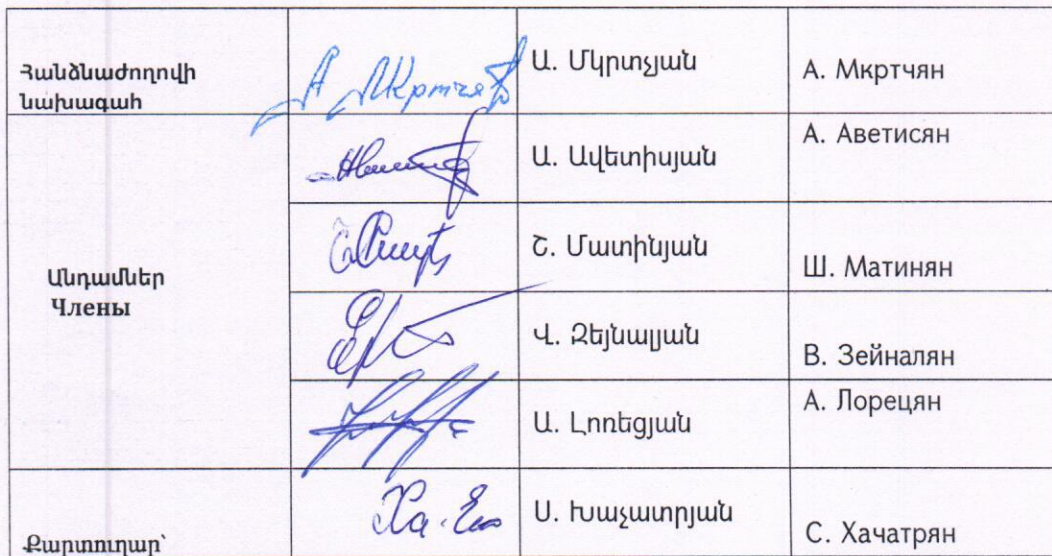 Հանձնաժողովի
նախագահ
А Мкртчян
Ա. Մկրտչյան
А. Мкртчян
Ա. Ավետիսյան
А. Аветисян
Անդամներ
Члены
Շ. Մատինյան
Ш. Матинян
Վ. Զեյնալյան
В. Зейналян
Ա. Լոռեցյան
А. Лорецян
Քարտուղար՝
Ս. Խաչատրյան
С. Хачатрян